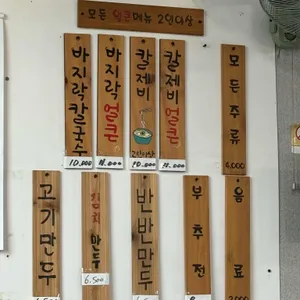 모든 얼큰메뉴 2인이상
바지락칼국수
10.000
바지락 얼큰
11.000
칼제비
2인이상
칼제비 얼큰
모든주류
4.000
고기만두
6.500
김치만두
6.500
반반만두
6.500
부추전
음료
2000